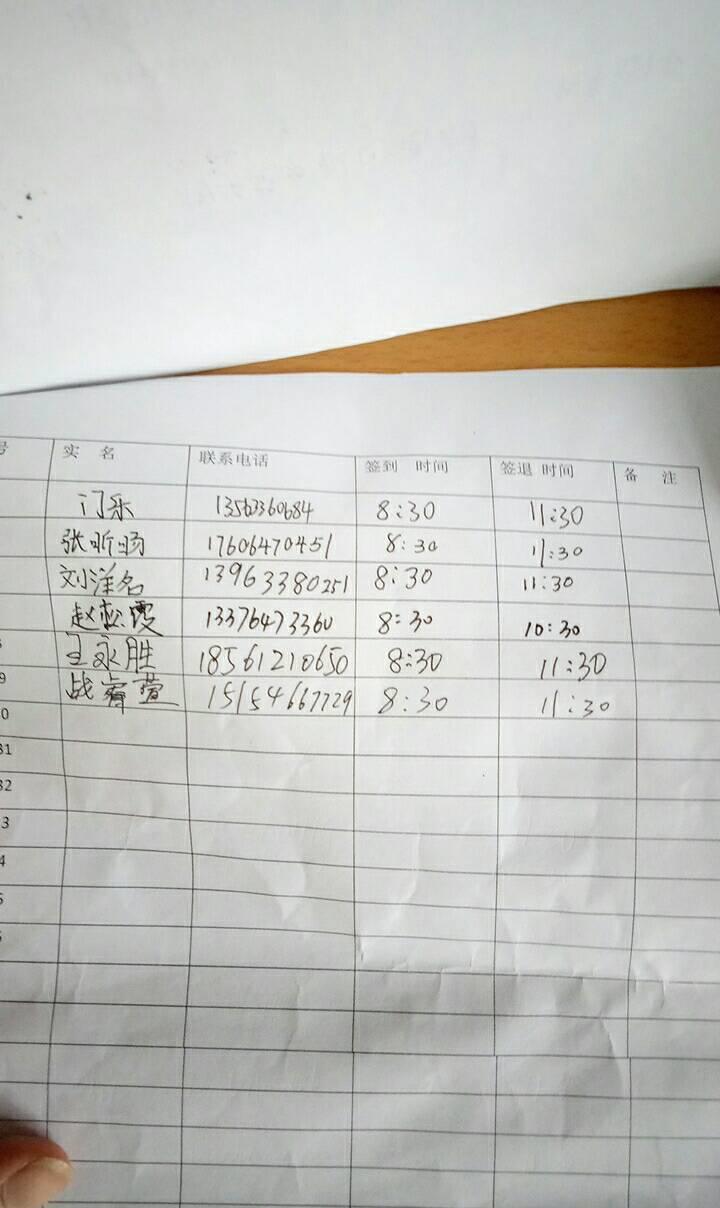 号 实 名 联系电话 签到 时间 签退 时间 备 注
门乐 13563360684 8:30 11:30
张昕旸 17606470451 8:30 11:30
刘洋名 13963380251 8:30 11:30
赵松霞 13376473360 8:30 10:30
王永胜 18561210650 8:30 11:30
9 战睿萱 15154667729 8:30 11:30
0
31
32
3
4
5